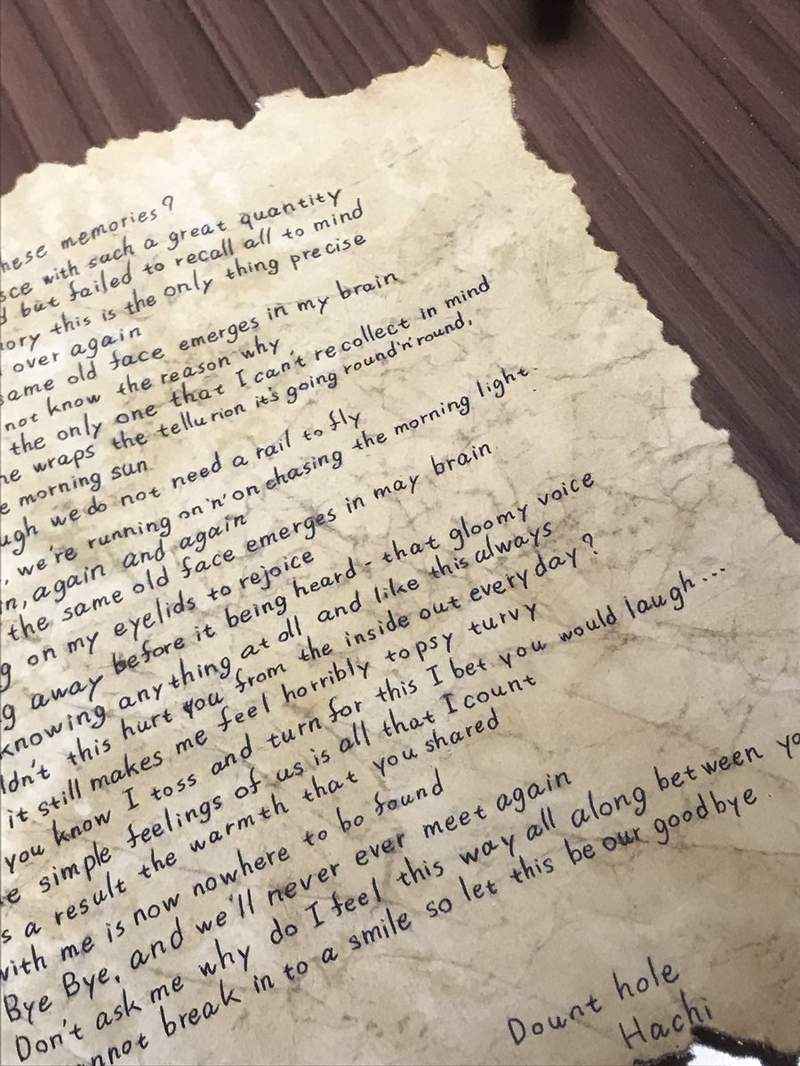 hese memories?
sce with such a great quantity
d but failed to recall all to mind
ory this is the only thing precise
over again
same old face emerges in my brain
not know the reason why
the only one that I can't recollect in mind
he wraps the tellurion it's going round'n'round,
e morning sun
ugh we do not need a rail to fly
we're running on'n'on chasing the morning light.
in, again and again
the same old face emerges in may brain
g on my eyelids to rejoice
g away before it being heard - that gloomy voice
knowing anything at all and like this always
ldn't this hurt you from the inside out everyday?
it still makes me feel horribly topsy turvy
you know I toss and turn for this I bet you would laugh...
e simple feelings of us is all that I count
s a result the warmth that you shared
with me is now nowhere to bo found
Bye Bye, and we'll never ever meet again
Don't ask me why do I feel this way all along between yo
annot break in to a smile so let this be our goodbye.
Dount hole
Hachi